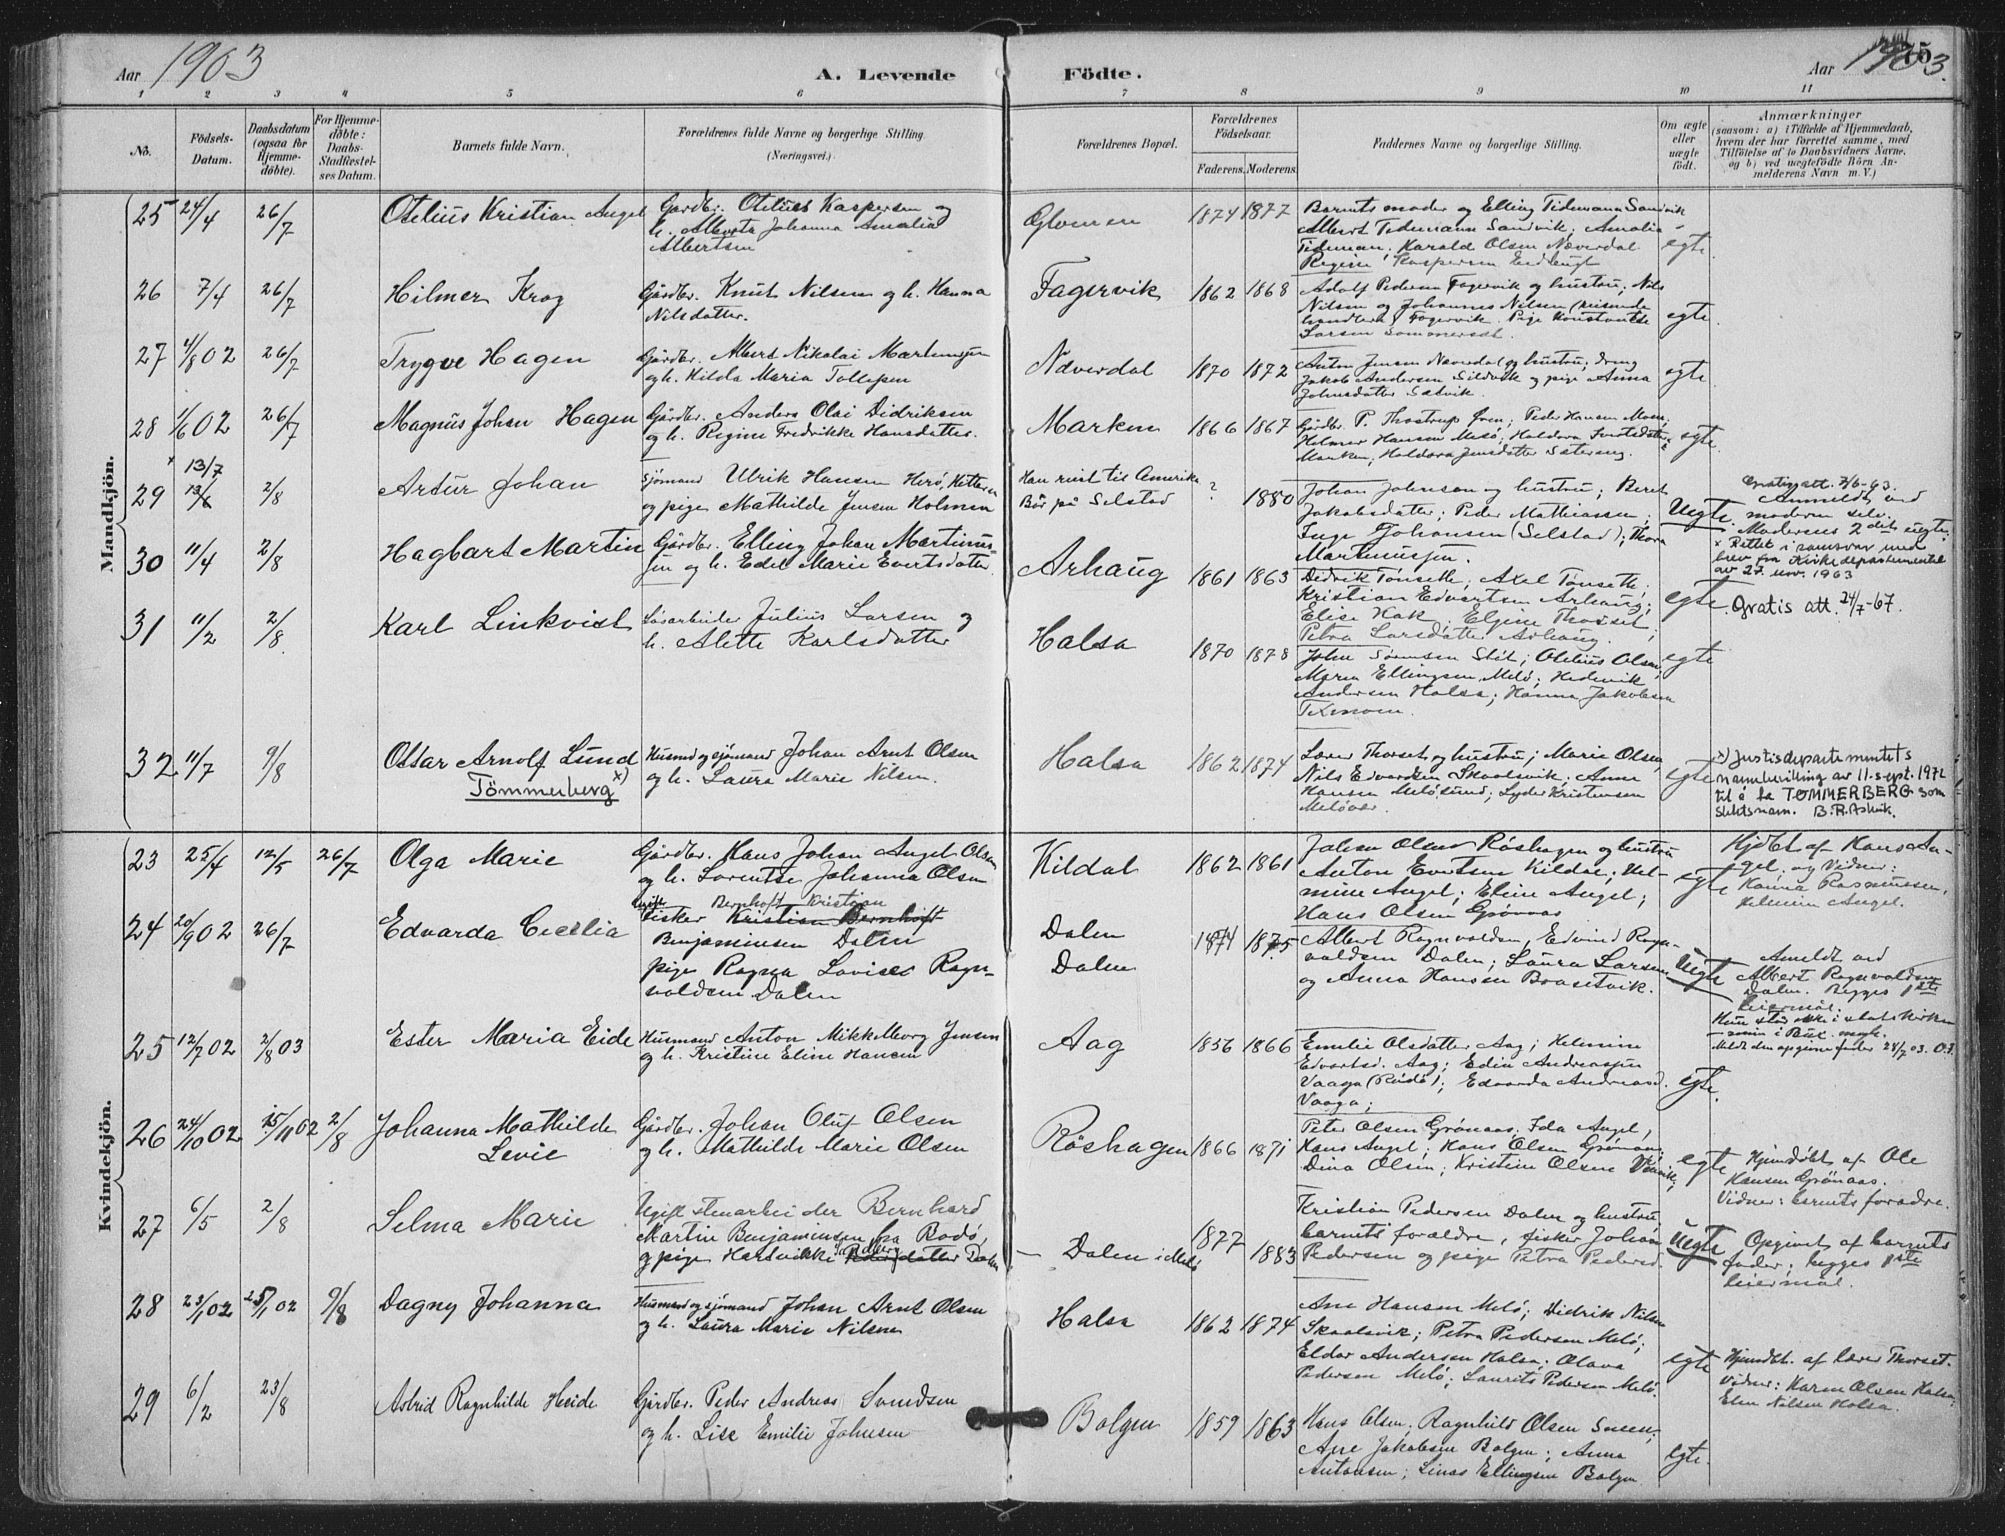 Aar 1903
A. Levende Födte.
Aar 1903.
75
1 2 3 4 5 6 7 8 9 10 11
No.
Födsels-
Datum.
Daabsdatum
(ogsaa for
Hjemme-
döbte).
For Hjemme-
döbte:
Daabs-
Stadfæstel-
ses Datum.
Barnets fulde Navn.
Forældrenes fulde Navne og borgerlige Stilling.
(Næringsvei.)
Forældrenes Bopæl.
Forældrenes
Födselsaar.
Faderens. Moderens.
Faddernes Navne og borgerlige Stilling.
Om ægte
eller
uægte
födt.
Anmærkninger
(saasom: a) i Tilfælde af Hjemmedaab,
hvem der har forrettet samme, med
Tilföielse af to Daabsvidners Navne,
og b) ved uægtefödte Börn An-
melderens Navn m. V.)
Mandkjön.
25 24/4 26/7 Otelius Kristian Angel
Gårdbr. Otelius Kaspersen og
h. Alberta Johanna Amalia
Albertsen
Glomen 1874 1877
Barnets moder og Elling Tidemann Sandvik
Albert Tidemann Sandvik; Amalia
Tideman; Harald Olsen Næverdal
Regine Kaspersen
egte.
26 7/4 26/7 Hilmer Krog
Gårdbr. Knut Nilsen og h. Hanna
Nilsdatter.
Fagervik 1862 1868
Adolf Pedersen Fagervik og hustru; Nils
Nilsen og Johannes Nilsen (reisende
handlende) Fagervik. Pige Konstanse
Larsen Sommerset.
egte.
27 4/8 02 26/7 Trygve Hagen
Gårdbr. Albert Nikolai Martinusen
og h. Hilda Maria Tollefsen
Næverdal 1870 1872
Anton Jensen Næverdal og hustru; dreng
Jakob Andersen Sildvik og pige Anna
Johnsdatter Sædvik.
egte
28 1/6 02 26/7 Magnus Johan Hagen
Gårdbr. Anders Olai Didriksen
og h. Regine Fredrikke Hansdatter.
Marken 1866 1867
Gårdbr. P. Thostrup Øren; Peder Hansen Moen;
Helmer Hansen Melø; Haldora
Marken; Haldora Jensdatter
egte
29 × 13/7 13/6 2/8 Artur Johan
Sjömand Ulrik Hansen Herö,
og pige Mathilde Jensen Holmen
Han reist til Amerika
Bör på Selstad
? 1880
Johan Johnsen og hustru; Beret
Jakobsdatter; Peder Mathiassen;
Inge Johansen (Selstad); Thora
Martinussen.
Uegte.
Gratis att. 7/6-93.
Anmeldt ved
moderen selv.
Moderens 2det uegte.
× Rettet i samsvar med
brev fra Kirkedepartementet
av 27. nov. 1963
30 11/4 2/8 Hagbart Martin
Gårdbr. Elling Johan Martinus-
sen og h. Edel Marie Evertsdatter
Arhaug 1861 1863
Didrik Tønseth; Axel Tønseth;
Kristian Edvartsen Arhaug;
Elise Hak; Elgine Thorset;
Petra Larsdatter Arhaug.
egte. Gratis att. 24/7-67.
31 11/2 2/8 Karl Linkvist
Løsarbeider Julius Larsen og
h. Alette Karlsdatter
Halsa 1870 1878
John Sørensen Støt; Otelius Olsen;
Maren Ellingsen Melø; Hedevik
Andersen Halsa; Hanna Jakobsen
egte
32 11/7 9/8 Ottar Arnolf Lund
Tömmerberg ×)
Husmd og sjömand Johan Arnt Olsen
og h. Laura Marie Nilsen.
Halsa 1862 1874
Lærer Thorset og hustru; Marie Olsen,
Nils Edvardsen Skaalsvik; Anne
Hansen Meløsund; Lyder Kristensen
Meløvær
egte
×) Justisdepartementets
navnebevilling av 11. sept. 1972
til å ta TØMMERBERG som
slektsnavn. B.R. Askvik.
Kvindekjön.
23 25/4 12/5 26/7 Olga Marie
Gårdbr. Hans Johan Angel Olsen
og h. Lorentse Johanna Olsen
Kildal 1862 1861
Johan Olsen Røshagen og hustru
Anton Evertsen Kildal; Hel-
mine Angel; Eline Angel;
Hans Olsen Grønnaas
egte
Hjdbt af Hans An-
gel; og Vidner:
Hanna Rasmussen,
Helmine Angel.
24 20/9 02 26/7 Edvarda Cecilia
Ugift Bernhoft Kristian
Fisker Kristian Bernhoft
Benjaminsen Dalen
pige Ragna Lovise Ragn-
valdsen Dalen
Dalen
Dalen
1874 1875
Albert Ragnvaldsen, Edvind Ragn-
valdsen Dalen; Laura Larsen
og Anna Hansen Brasetvik.
Uegte
Anmeldt ved
Albert Ragnvaldsen
Dalen. Begges 1ste
leiermål.
Hun står ikke i stats kirken
Meldt den opgivne fader 28/7 03. O.J.
25 12/7 02 2/8 03 Ester Maria Eide
Husmand Anton Mikkelborg Jensen
og h. Kristine Eline Hansen
Aag 1856 1866
Emilie Olsdatter Aag; Helmine
Edvartsd. Aag; Edin Andreassen
Vaaga (Rödö); Edvarda Andreasd.
Vaaga;
egte.
26 24/10 02 15/11 02 2/8 Johanna Mathilde
Levie
Gårdbr. Johan Oluf Olsen
og h. Mathilde Marie Olsen
Røshagen 1866 1871
Peter Olsen Grönaas; Ida Angel;
Hans Angel; Hans Olsen Grönaas;
Dina Olsen; Kristine Olsen
egte
Hjemdöbt af Ole
Hansen Grönaas.
Vidner: barnets forældre.
27 6/5 2/8 Selma Marie
Ugift stenarbeider Bernhard
Martin Benjaminsen fra Bodö,
og pige Hartvikke Pedersdatter Dalen
– Dalen i Melö
1877 1883
Kristian Pedersen Dalen og hustru,
barnets forældre, fisker Johan
Pedersen og pige Petra Pedersd.
Uegte
Opgivet af barnets
fader; begges 1ste
leiermål.
28 23/1 02 25/1 02 9/8 Dagny Johanna
Husmand og sjömand Johan Arnt Olsen
og h. Laura Marie Nilsen
Halsa 1862 1874
Ane Hansen Melö; Didrik Nilsen
Skaalsvik; Petra Pedersen Melö;
Eldor Andersen Halsa; Olava
Pedersen Melö; Laurits Pedersen Melö.
egte
Hjemdbt. af lærer Thorset.
Vidner: Karen Olsen Halsa,
Elen Nilsen Halsa.
29 6/2 23/8 Astrid Ragnhilde Heide
Gårdbr. Peder Andreas Svendsen
og h. Lise Emilie Johnsen
Bolgen 1859 1863
Hans Olsen; Ragnhild Olsen
Ane Jakobsen Bolgen; Anna
Antonsen; Linas Ellingsen Bolgen
egte.